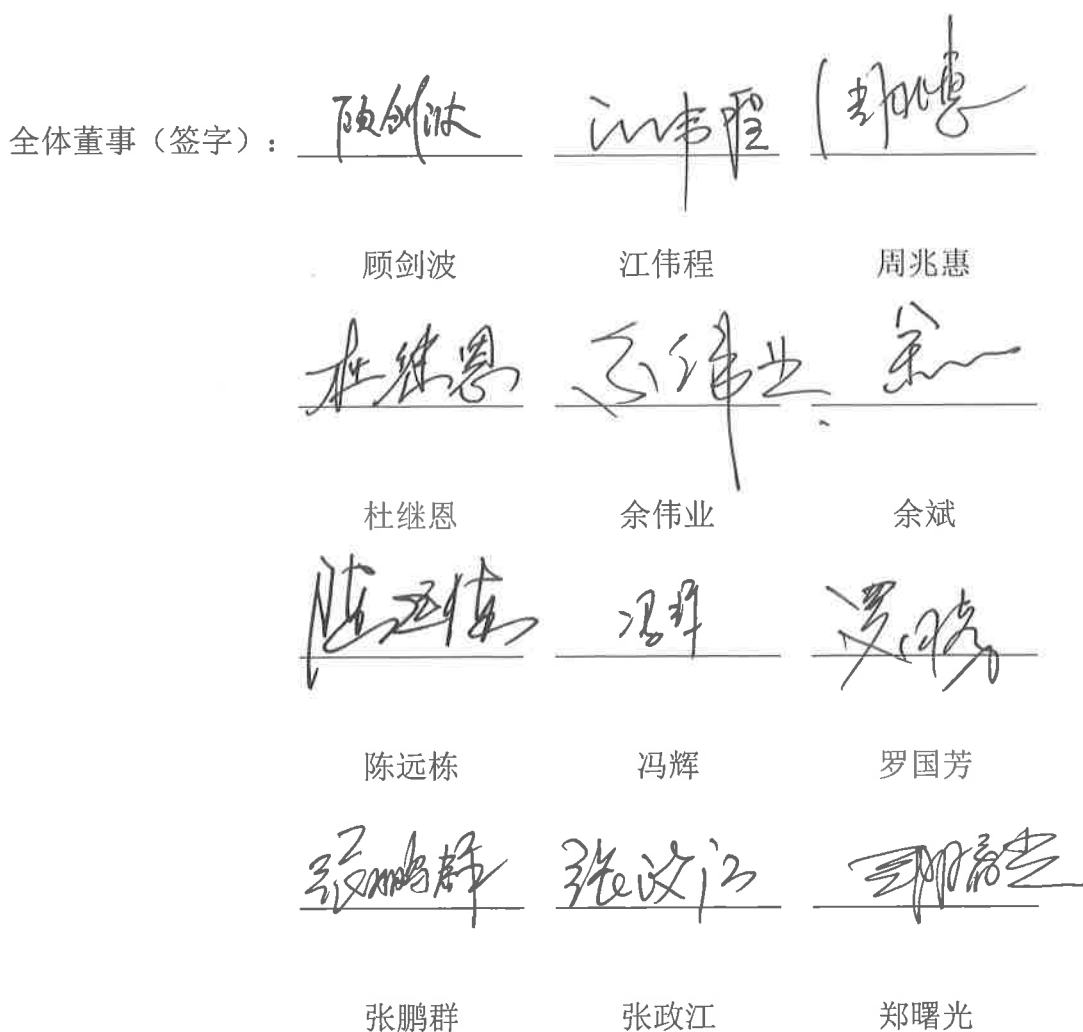 全体董事（签字）：
顾剑波 江伟程 周兆惠
顾剑波 江伟程 周兆惠
杜继恩 余伟业 余
杜继恩 余伟业 余斌
陈远栋 冯辉
陈远栋 冯辉 罗国芳
张鹏群 张政江 郑曙光
张鹏群 张政江 郑曙光